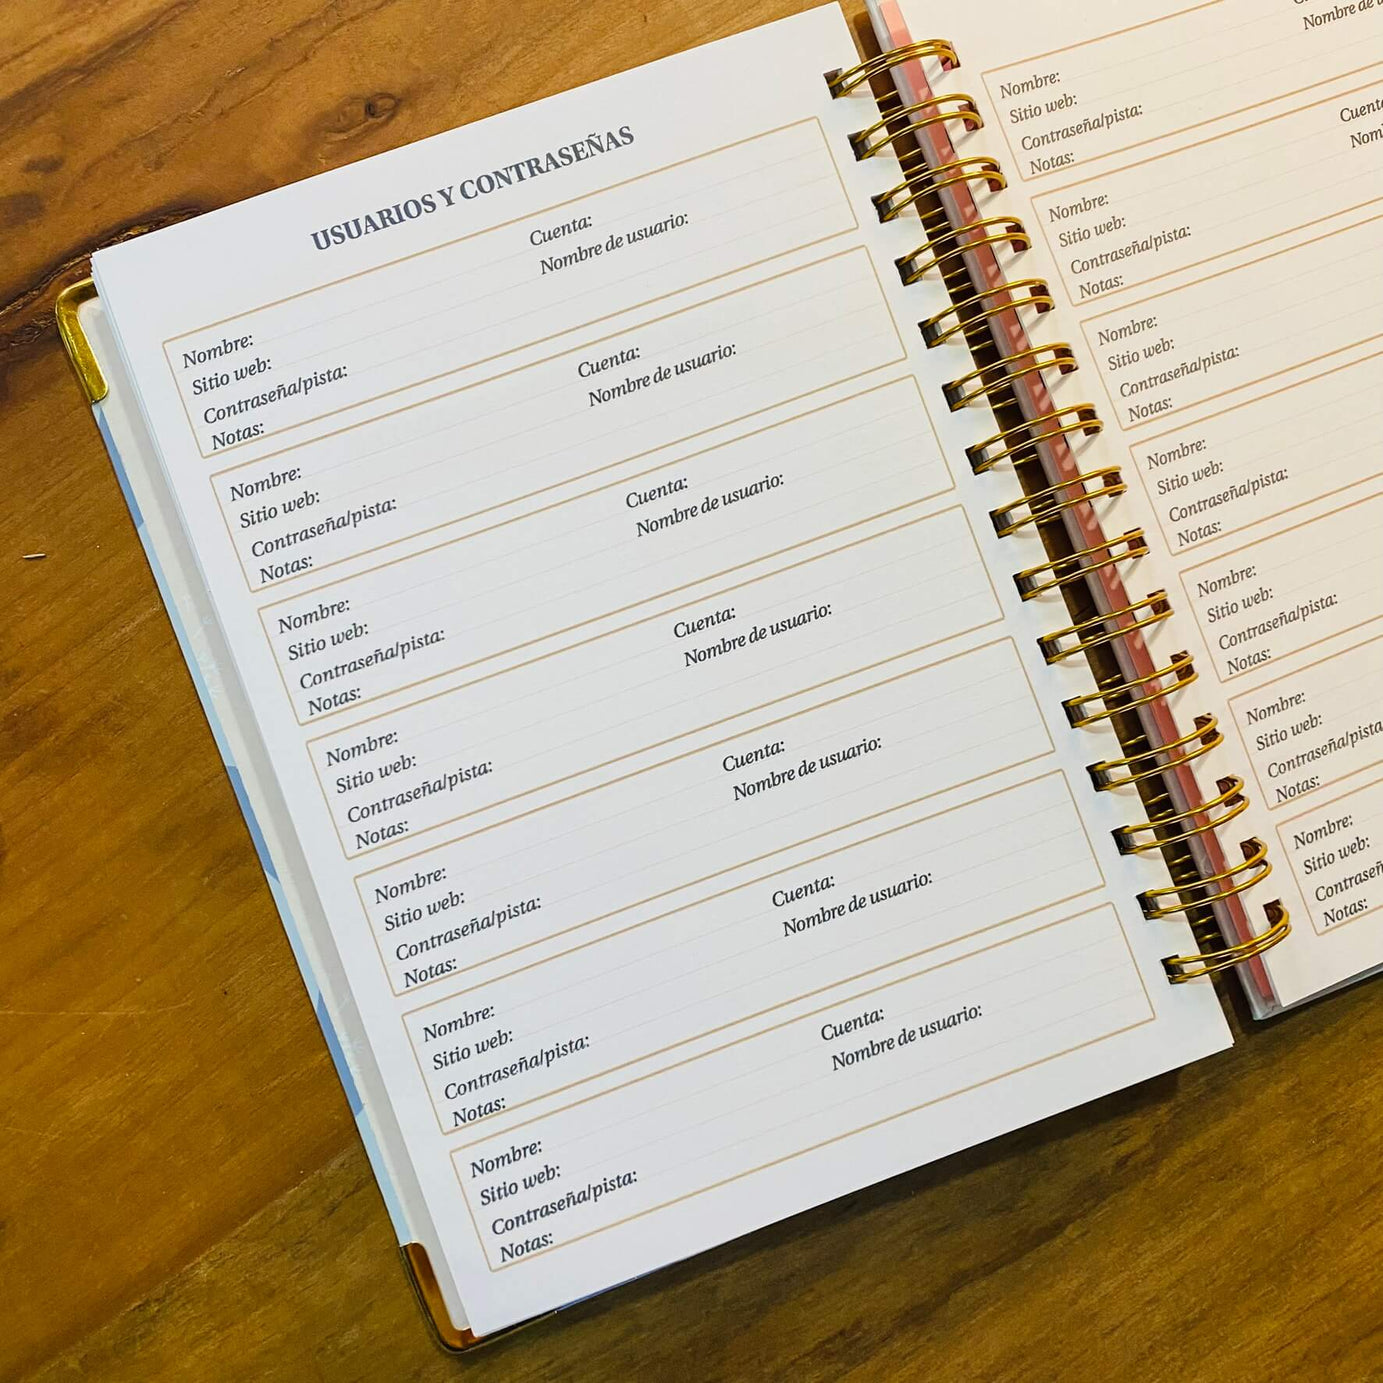 USUARIOS Y CONTRASEÑAS
Nombre: Cuenta:
Sitio web: Nombre de usuario:
Contraseña/pista:
Notas:
Nombre: Cuenta:
Sitio web: Nombre de usuario:
Contraseña/pista:
Notas:
Nombre: Cuenta:
Sitio web: Nombre de usuario:
Contraseña/pista:
Notas:
Nombre: Cuenta:
Sitio web: Nombre de usuario:
Contraseña/pista:
Notas:
Nombre: Cuenta:
Sitio web: Nombre de usuario:
Contraseña/pista:
Notas:
Nombre: Cuenta:
Sitio web: Nombre de usuario:
Contraseña/pista:
Notas:
Nombre: Cuenta:
Sitio web: Nombre de usuario:
Contraseña/pista:
Notas:
Nombre:
Sitio web: Nombre de
Contraseña/pista:
Notas:
Nombre:
Sitio web:
Contraseña/pista:
Notas:
Nombre:
Sitio web:
Contraseña/pista:
Notas:
Nombre:
Sitio web:
Contraseña/pista:
Notas:
Nombre:
Sitio web:
Contraseña/pista:
Notas:
Nombre:
Sitio web:
Contraseña/pista
Notas:
Nombre:
Sitio web:
Notas: